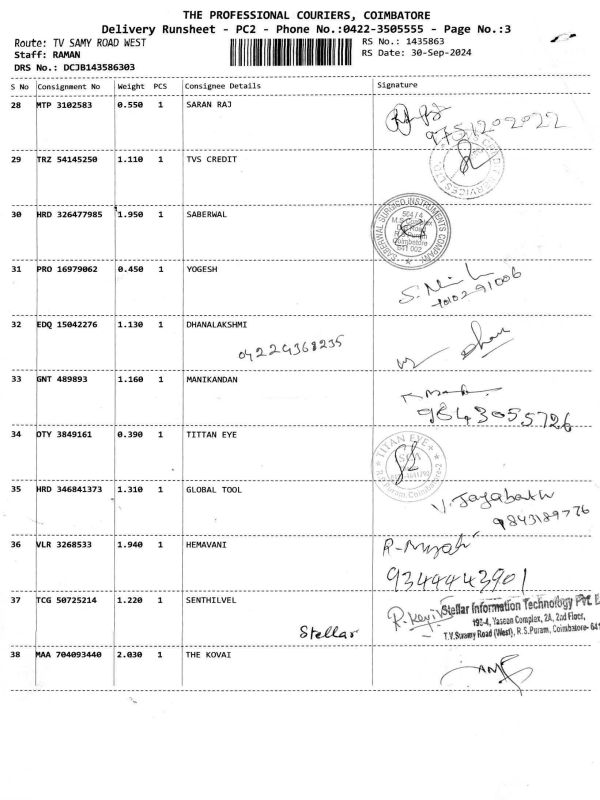 THE PROFESSIONAL COURIERS, COIMBATORE
Delivery Runsheet - PC2 - Phone No.:0422-3505555 - Page No.:3
Route: TV SAMY ROAD WEST
RS No.: 1435863
Staff: RAMAN
RS Date: 30-Sep-2024
DRS No.: DCJB143586303
S No Consignment No Weight PCS Consignee Details Signature
28 MTP 3102583 0.550 1 SARAN RAJ
9751202022
29 TRZ 54145250 1.110 1 TVS CREDIT
30 HRD 326477985 1.950 1 SABERWAL
SABERWAL SURGICO INSTRUMENTS COMPANY
564 / 4
M.S Complex
R.S Puram
Coimbatore
641 002
31 PRO 16979062 0.450 1 YOGESH
32 EDQ 15042276 1.130 1 DHANALAKSHMI
04224368235
33 GNT 489893 1.160 1 MANIKANDAN
9843055726
34 OTY 3849161 0.390 1 TITTAN EYE
TITAN EYE+
R.S Puram, Coimbatore-2
35 HRD 346841373 1.310 1 GLOBAL TOOL
9843189776
36 VLR 3268533 1.940 1 HEMAVANI
9344443901
37 TCG 50725214 1.220 1 SENTHILVEL
Stellar
Stellar Information Technology Pvt. L
193-4, Yaseen Complex, 2A, 2nd Floor,
T.V.Swamy Road (West), R.S.Puram, Coimbatore- 641
38 MAA 704093440 2.030 1 THE KOVAI